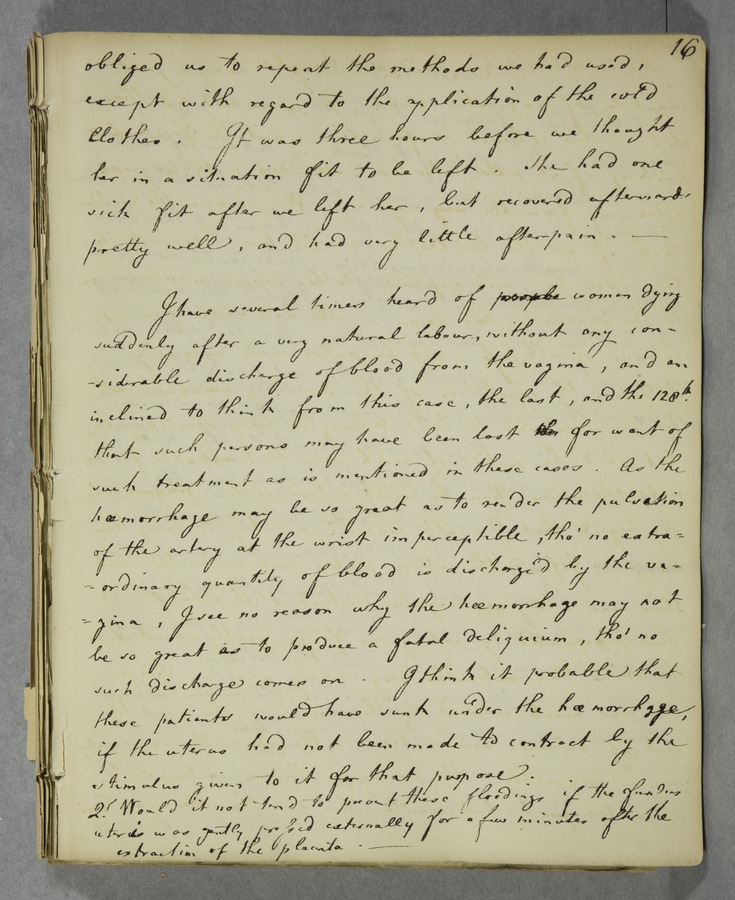 16
obliged us to repeat the methods we had used,
except with regard to the application of the cold
Clothes. It was three hours before we thought
her in a situation fit to be left. She had one
sick fit after we left her, but recovered afterwards
pretty well, and had very little after-pain. —
I have several times heard of people women dying
suddenly after a very natural labour, without any con-
-siderable discharge of blood from the vagina, and am
inclined to think from this case, the last, and the 128th.
that such persons may have been lost for want of
such treatment as is mentioned in these cases. As the
hæmorrhage may be so great as to render the pulsation
of the artery at the wrist imperceptible, tho' no extra=
=ordinary quantity of blood is discharg'd by the va=
=gina, I see no reason why the hæmorrhage may not
be so great as to produce a fatal deliquium, tho' no
such discharge comes on. I think it probable that
these patients would have sunk under the hæmorrhage,
if the uterus had not been made to contract by the
stimulus given to it for that purpose.
Would it not tend to prevent these floodings if the fundus
uteris was gently pressed externally for a few minutes after the
extraction of the placenta. —